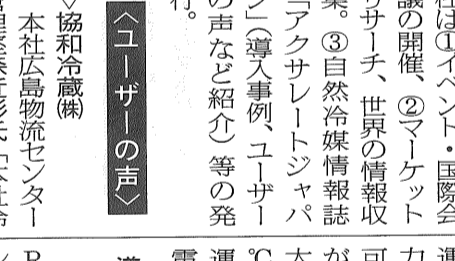 社は①イベント・国際会
議の開催、②マーケット
リサーチ、世界の情報収
集。③自然冷媒情報誌
「アクサレートジャパ
ン」(導入事例、ユーザー
の声など紹介)等の発
行。
〈ユーザーの声〉
▽協和冷蔵㈱
本社広島物流センター
運
力
可
が
大
℃
運
電